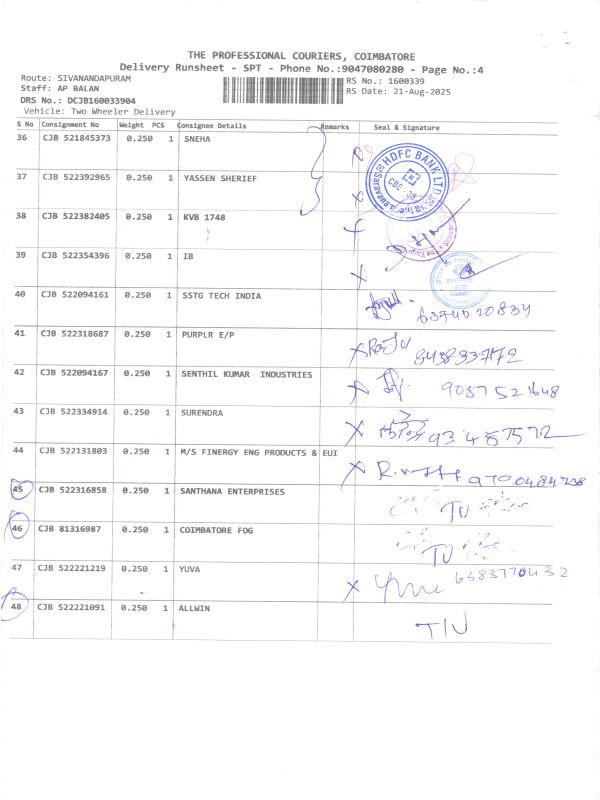 THE PROFESSIONAL COURIERS, COIMBATORE
Delivery Runsheet - SPT - Phone No.:9047080280 - Page No.:4
Route: SIVANANDAPURAM RS No.: 1600339
Staff: AP BALAN RS Date: 21-Aug-2025
DRS No.: DCJB160033904
Vehicle: Two Wheeler Delivery
S No Consignment No Weight PCS Consignee Details Remarks Seal & Signature
36 CJB 521845373 0.250 1 SNEHA
HDFC BANK LTD
CBE - 38
37 CJB 522392965 0.250 1 YASSEN SHERIEF
38 CJB 522382405 0.250 1 KVB 1748
39 CJB 522354396 0.250 1 IB
40 CJB 522094161 0.250 1 SSTG TECH INDIA 6374020834
41 CJB 522318687 0.250 1 PURPLR E/P 843833772
42 CJB 522094167 0.250 1 SENTHIL KUMAR INDUSTRIES 9087521648
43 CJB 522334914 0.250 1 SURENDRA
44 CJB 522131803 0.250 1 M/S FINERGY ENG PRODUCTS & EUI
45 CJB 522316858 0.250 1 SANTHANA ENTERPRISES
46 CJB 81316987 0.250 1 COIMBATORE FOG
47 CJB 522221219 0.250 1 YUVA 6383770432
48 CJB 522221091 0.250 1 ALLWIN